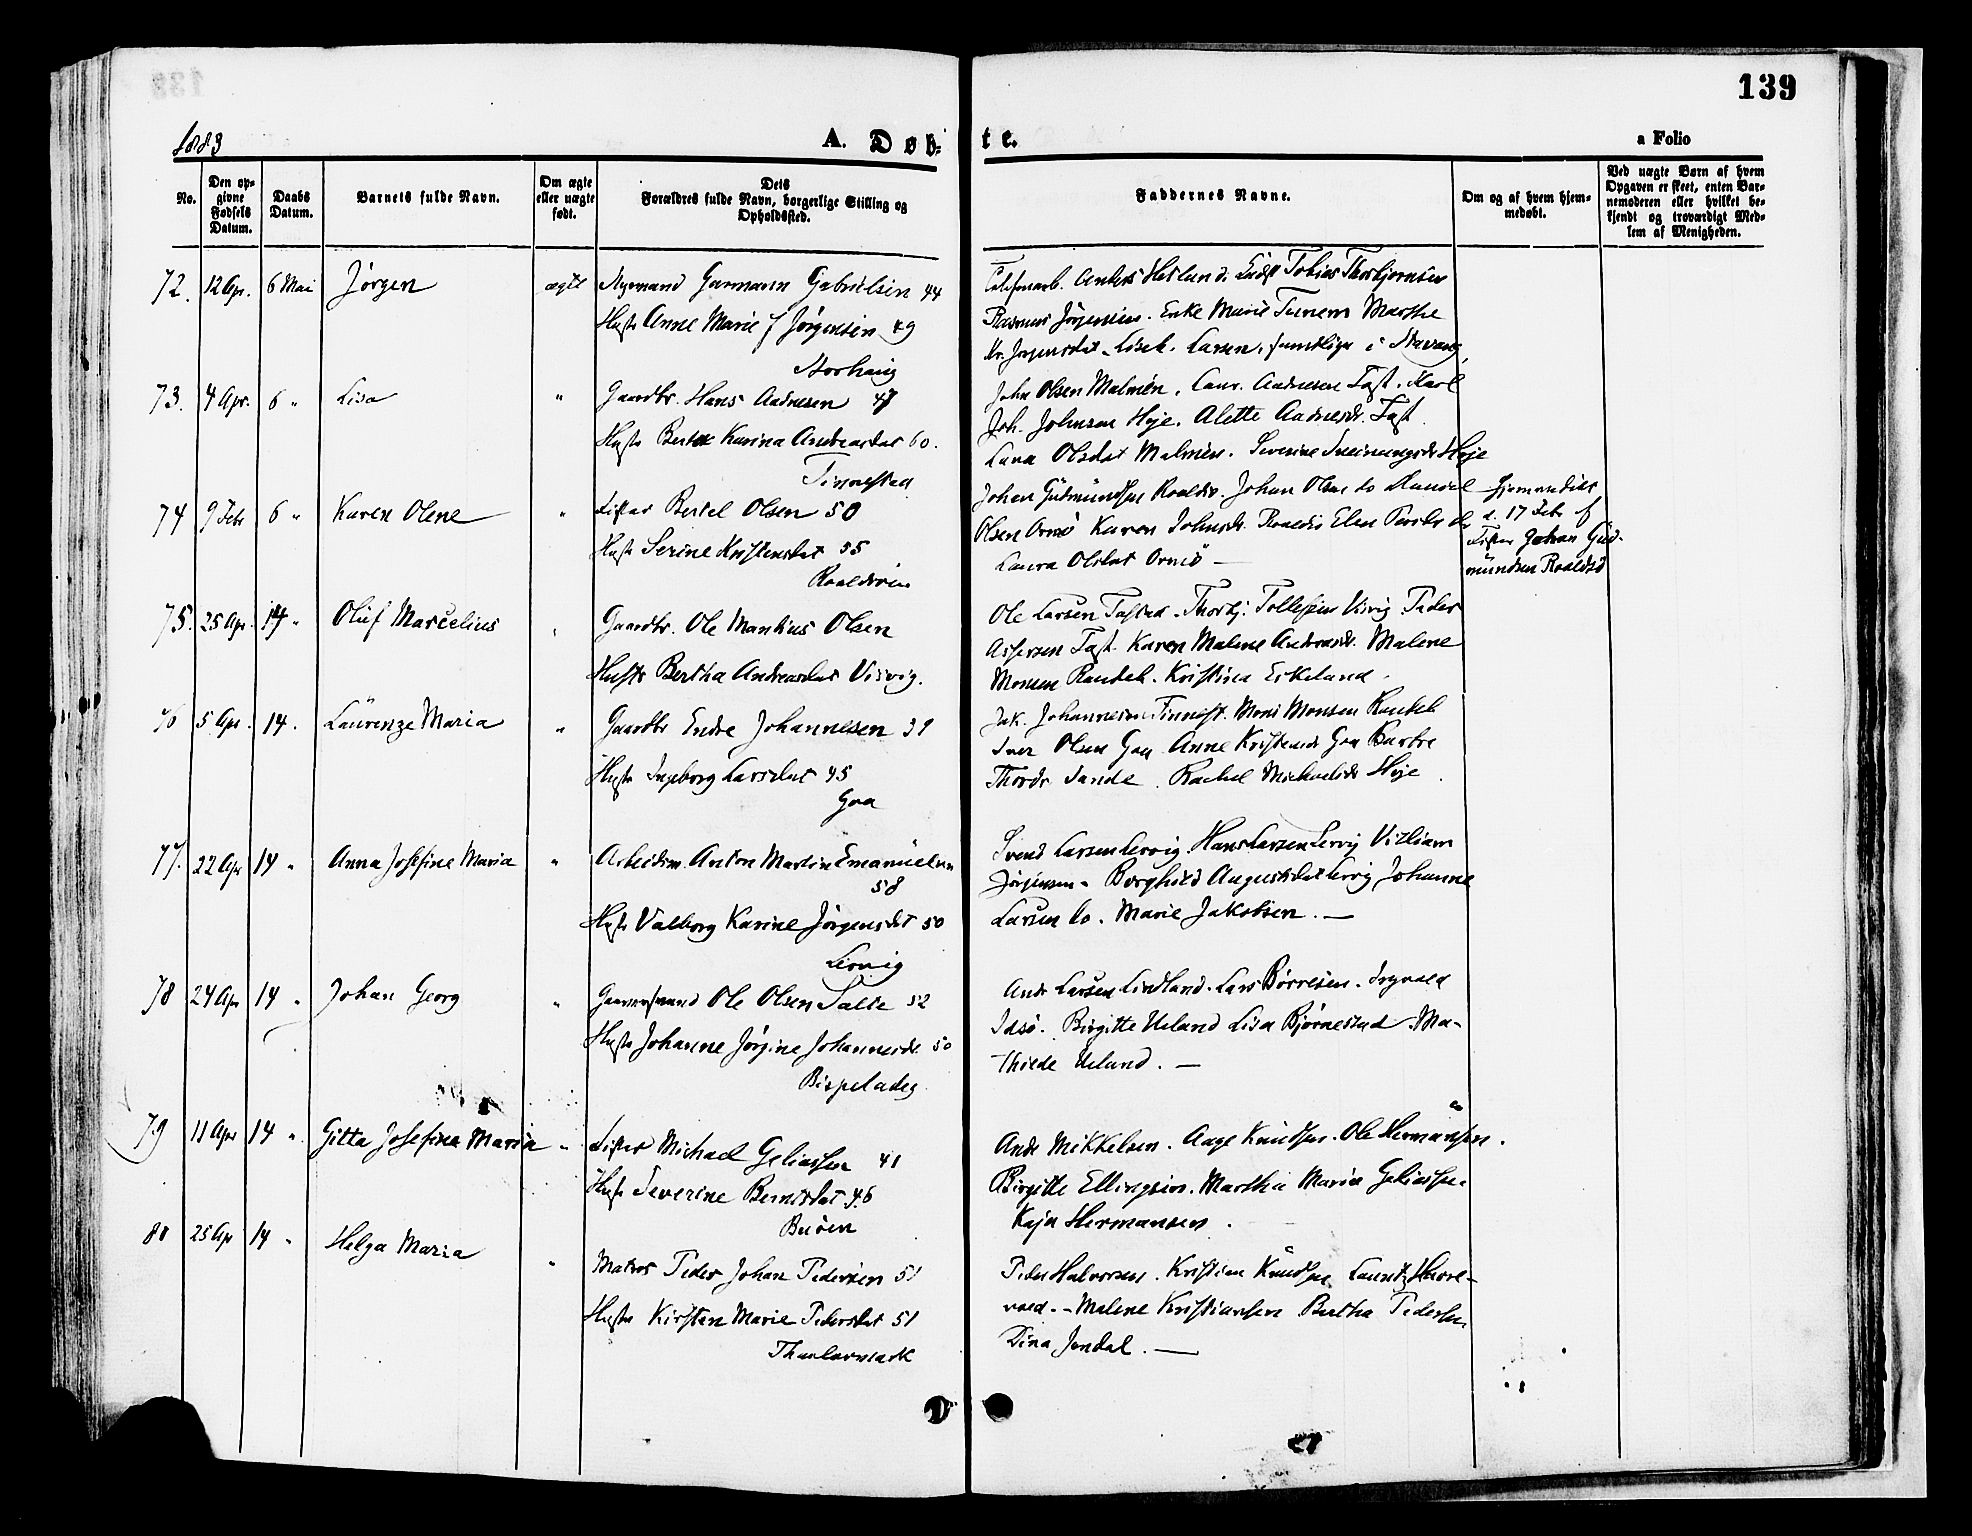 139
1883
A. Døb-
te.
a Folio
No.
Den op-
givne
Fødsels
Datum.
Daabs
Datum.
Barnets fulde Navn.
Om ægte
eller uægte
født.
Dets
Forældres fulde Navn, borgerlige Stilling og
Opholdssted.
Faddernes Navne.
Om og af hvem hjem-
medøbt.
Ved uægte Børn af hvem
Opgaven er skeet, enten Bar-
nemoderen eller hvilket be-
kjendt og troværdigt Med-
lem af Menigheden.
72. 12 Apr. 6 Mai Jørgen ægte Garmann Gabrielsen 44
Hustr Anne Marie f Jørgensen 49
Storhaug
Anders Hesland. Tobias Thorbjørnsen
Rasmus Jørgensen. Enke Marie Tunem Marthe
Lisek. Larsen, samtlige i Stavang
73. 4 Apr. 6 " Lisa " Gaardbr. Hans Aadnesen 47
Hustr Berte Karina Andreasdat 60.
Tinnestad
John Olsen Malmén. Laur. Aadnesen Tast. Karl
Joh. Johnson Høje. Alette Aadnesdr. Tast.
Lava Olsdat Malmén. Severine Sveinungsdr Høje
74 9 Febr 6 " Karen Olene " Fisker Bertel Olsen 50
Hustr Serine Kristensdat 55
Roaldsøen
Johan Gudmundsen Roaldsø. Johan Olsen do Daniel
Olsen Ormø Karen Johnsdr. Roaldsø Elen
Laura Olsdat Ormø —
hjemmedøbt
d. 17 Febr af
Fisker Johan Gud-
mundsen Roaldsø
75. 25 Apr. 14 " Oluf Marcelius " Gaardbr. Ole Mankius Olsen
Hustr Bertha Andreasdat Visvig.
Ole Larsen Tasted. Thorbj. Tollefsen Visvig. Peder
Assersen Tast. Karen Malene Andreasdr. Malene
Monsen Randeb. Kristina Eikeland.
76 5 Apr. 14. Laurenze Maria " Gaardbr Endre Johannesen 39
Hustr Ingeborg Larsdat 45
Goa
Jak. Johannesen Finnest. Mons Monsen Randeb
Iver Olsen Goa Anne Kristensdr Goa Barbre
Thorsdr Sande. Rachel Michaelsdr Høje
77. 22 Apr 14 " Anna Josefine Maria " Arbeidsm. Anton Martin Emanuelsen
58
Hustr Valborg Karine Jørgensdat 50
Lervig
Svend Larsen Lervig. Hans Larsen Lervig Villiam
Jørgensen. Borghild Augustsdat Lervig Johanne
Larsen do. Marie Jakobsen. —
78 24 Apr 14 " Johan Georg " Ole Olsen Salte 52
Hustr Johanne Jørgine Johannesdr. 50
Bispeladeg.
Andr Larsen Lindland. Lars Børresen. Trygvald
Idsø. Birgitte Ueland Lisa Bjørnestad. Ma-
thilde Ueland. —
79 11 Apr 14 " Gitta Josefine Maria " Fisker Michael Geliassen 41
Hustr Severine Berntsdat 46
Buøen
Andr Mikkelsen. Aage Knudsen. Ole Hermansen.
Birgitte Ellingsen. Martha Marie Geliassen.
Kaja Hermansen.
80 25 Apr 14 " Helga Maria " Matros Peder Johan Pedersen 51
Hustr Kirsten Marie Pedersdat 51
Peder Halvorsen. Kristian Knudsen Lauritz Hove-
vold. - Malene Kristiansen Bertha Pedersen.
Dina Jondal. —